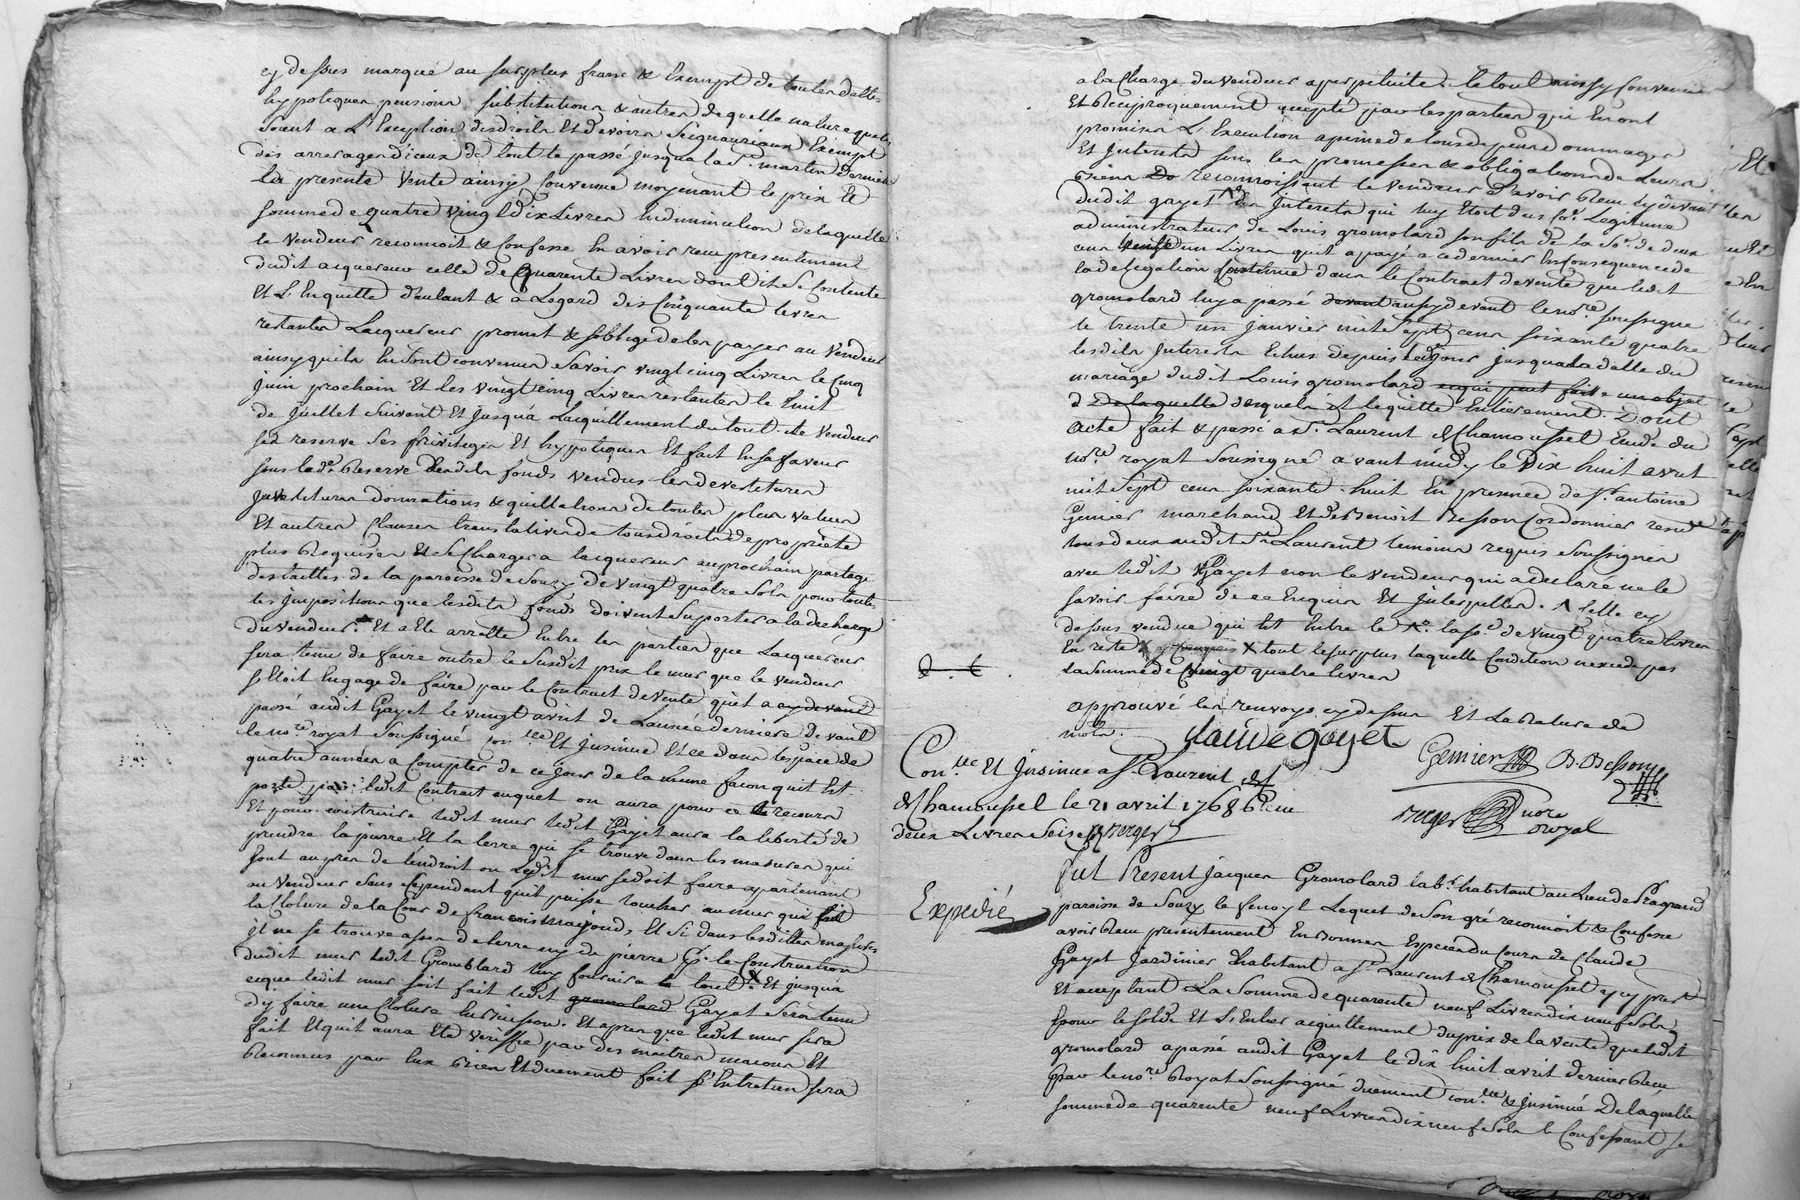 cy dessus marqué au surplus franc & Exempt de toutes dettes
hypoteques pensions, substitutions & autres de quelle nature quelles
soient a L'Exception des droits Et devoirs Seigneuriaux Exempt
des arrerages diceux de tout le passé jusqua la St. martin derniere
La presente Vente ainsy Convenue moyenant le prix Et
somme de quatre vingt dix Livres En diminution de laquelle
le vendeur reconnoit & Confesse En avoir recu presentement
dudit acquereur celle de Quarente Livres dont Il se Contente
Et L'En quitte d'autant & a Legard des Cinquante Livres
restantes Lacquereur promet & soblige de les payer au Vendeur
ainsy quils En sont convenus Savoir vingt cinq Livres le Cinq
juin prochain Et les vingt cinq Livres restantes le huit
de juillet Suivant Et jusqu'a Lacquittement du tout. Le Vendeur
se reserve Ses privileges Et hypoteques Et fait En sa faveur
sous lade. Reserve desdits fonds vendus les devestitures
Investitures donnations & quittations de toutes plus values
Et autres Clauses translatives de tous droits de proprieté
plus Requises Et Se Chargera lacquereur au prochain partage
des tailles de la paroisse de Souzy de vingt quatre Sols pour toutes
les Impositions que lesdits fonds doivent Suporter a la decharge
du vendeur. Et a Eté arretté Entre les parties que Lacquereur
sera tenu de faire outre le Susdit prix le mur que le vendeur
s'Etoit Engagé de faire par le Contract de Vente quil a cy devant
passé audit Gayet le vingt avril de Lannée derniere devant
le nore. royal Soussigné conllé Et Insinué Et ce dans lespace de
quatre années a Compter de ce jour de la meme façon quil Est
porté par ledit Contrat auquel on aura pour ce recours
Et pour construire ledit mur ledit Gayet aura la liberté de
prendre la pierre Et la terre qui se trouve dans les masures qui
sont aupres de lendroit ou Ledit mur se doit faire apartenant
au Vendeur Sans Cependant quil puisse toucher au mur qui fait
la Cloture de la Cour de francois maijonds Et Si dans lesdittes masures
il ne se trouve assez de terre ny de pierre p. la Construction
dudit mur ledit Gromolard luy fournira le tout X Et jusqu'a
ceque ledit mur soit fait ledit gromolard Gayet Sera tenu
dy faire une Cloture En Buisson. Et apres que ledit mur sera
fait Et quil aura Eté verifié par des maitres macons Et
Reconnus par Eux Bien Et duement fait, L'Entretien sera
a la Charge du vendeur a perpetuite. Le tout ainsy Convenu
Et Reciproquement accepté par les parties qui En ont
promis L'Execution a peine de tous depens dommages
Et Interets sous les promesses & obligations de Leurs
Biens Do reconnoissant le Vendeur d'avoir Recu cy devant
dudit gayet les Interets qui luy Etoit dus Coe. Legitime
administrateur de Louis gromolard son fils de la Soe. de deux
cens un Livres quil a payé a ce dernier En Consequence de
la delegation Contenue dans le Contract de vente que ledit
gromolard luy a passé devant aussy devant le nore. soussigné
le trente un janvier mil sept cens soixante quatre
lesdits Interets Echus depuis ledit jour jusqua la datte du
mariage dudit Louis gromolard cequi peut faire un objet
d de laquelle desquels Il le quitte Entierement. Dont
acte fait & passé a St. Laurent de Chamousset Etude du
nore. royal Soussigné avant midy le Dix huit avril
mil Sept cens Soixante huit En presence de Sr. antoine
Genier marchand Et de Benoit Besson Cordonnier residt.
tous deux audit St Laurent temoins requis Soussignés
avec ledit Gayet non le vendeur qui a declaré ne le
savoir faire de ce Enquis Et Interpellés. celle cy
dessus vendue qui Est Entre le la se. de vingt quatre livres
En reste X X tout le surplus laquelle Condition nexcede pas
la Somme de vingt quatre livres
approuvé les renvoys cy dessus Et La Rature de
mots.
Claude gayet
Genier B. Besson
Berger nore royal
Con.llé Et Insinué a St. Laurent de
Chamousset le 21 avril 1768 Recu
deux Livres Seise s. Berger
Expedié
Fut Present Jacques Gromolard labr. habitant au Lieu de Pragrand
paroisse de Souzy le Venoy L Lequel de Son gré reconnoit & Confesse
avoir Recu presentement En Bonnes Especes du Cours de Claude
Gayet Jardinier habitant a St. Laurent de Chamousset y cy prest.
Et acceptant La Somme de quarente neuf Livres dix neuf Sols
pour le solde Et L'Entier acquittement du prix de la Vente que ledit
gromolard a passé audit Gayet le Dix huit avril dernier Recu
par le nore. Royal Soussigné duement con.llé & Insinué De laquelle
somme de quarente neuf Livres dix neuf Sols le Confessant se